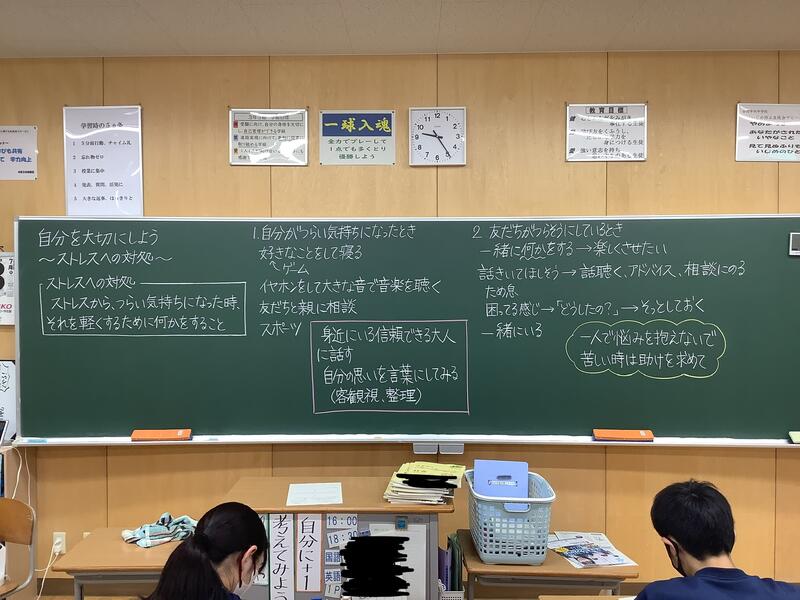 学習時の5ヵ条
1 5分前行動、チャイム礼
2 忘れ物ゼロ
3 授業に集中
4 発表、質問、活発に
5 大きな返事、はっきりと
びも共有
て 学力向上
一球入魂
全力でプレーして
1点でも多くとり
優勝しよう
教育目標
強い意志を持ち
あなたがされた
いやなこと
見て見ぬふりも
いじめのひと
自分を大切にしよう
～ストレスへの対処～
ストレスへの対処
ストレスから、つらい気持ちになった時、
それを軽くするために何かをすること
1.自分がつらい気持ちになったとき
好きなことをして寝る
ゲーム
イヤホンをして大きな音で音楽を聴く
友だちと親に相談
スポーツ
身近にいる信頼できる大人
に話す
自分の思いを言葉にしてみる
(客観視、整理)
2. 友だちがつらそうにしているとき
一緒に何かをする→楽しくさせたい
話きいてほしそう→話聴く、アドバイス、相談にのる
ため息
困ってる感じ→「どうしたの?」→そっとしておく
一緒にいる
一人で悩みを抱えないで
苦しい時は助けを求めて
自分に+1
考えてみよう
16:00
18:30
国語
英語